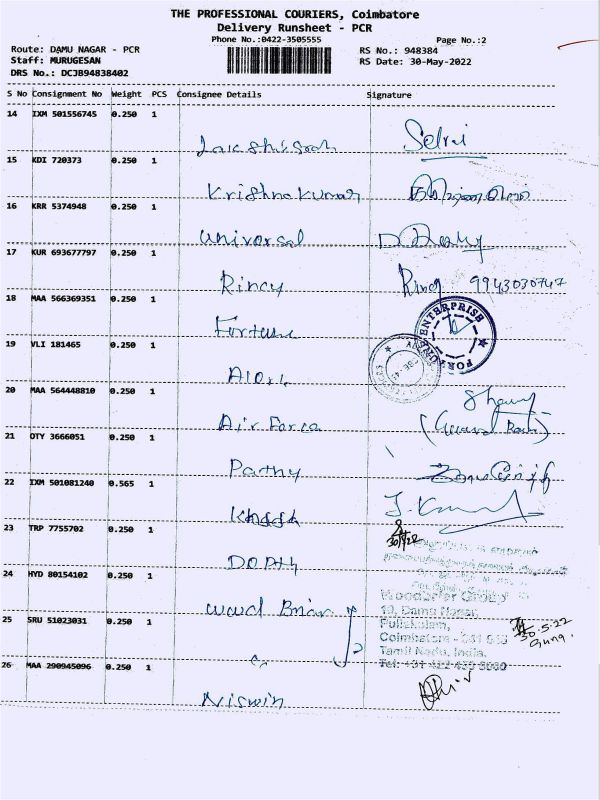 THE PROFESSIONAL COURIERS, Coimbatore
Delivery Runsheet - PCR
Phone No.:0422-3505555
Page No.:2
Route: DAMU NAGAR - PCR
RS No.: 948384
Staff: MURUGESAN
RS Date: 30-May-2022
DRS No.: DCJB94838402
S No Consignment No Weight PCS Consignee Details Signature
14 IXM 501556745 0.250 1
Selvi
15 KDI 720373 0.250 1
Krishna kumar
16 KRR 5374948 0.250 1
Universal
17 KUR 693677797 0.250 1
Rincy Rincy 9943030747
18 MAA 566369351 0.250 1
Fortune
FORTUNE ENTERPRISE
19 VLI 181465 0.250 1
20 MAA 564448810 0.250 1
Air Force
21 OTY 3666051 0.250 1
Parthy
22 IXM 501081240 0.565 1
J. Kumar
23 TRP 7755702 0.250 1
24 HYD 80154102 0.250 1
Group
19, Damu Nagar,
Puliakulam,
25 SRU 51023031 0.250 1
30.5.22
Guna.
Coimbatore - 641 045
Tamil Nadu, India.
26 MAA 290945096 0.250 1
Niswin